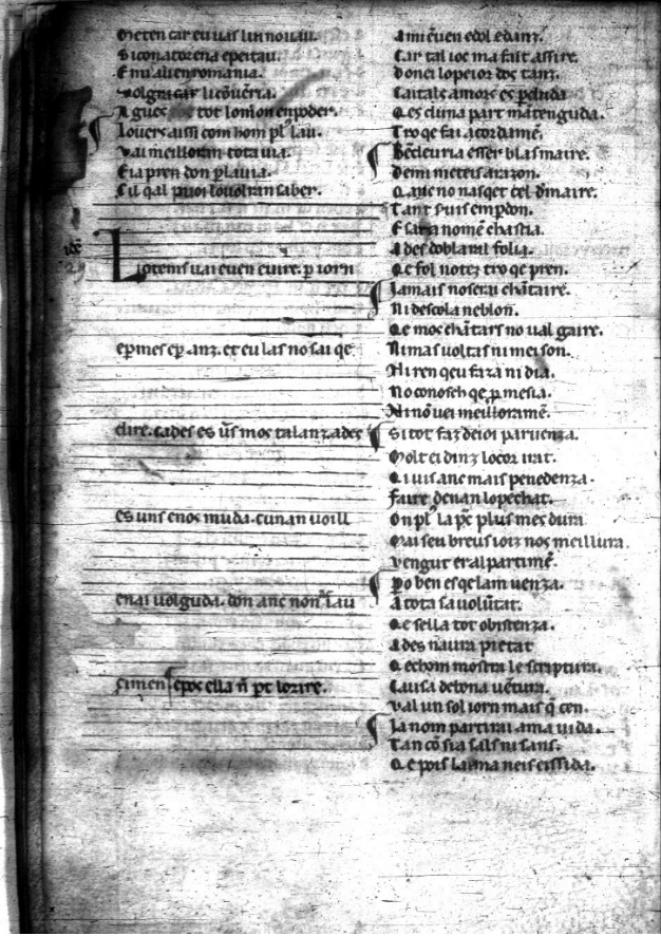 Meten car eu uas lui nouau.
Si con atorena epeitau.
E nu alien romania.
Uolgra car li cōuerra.
A gues tot tot lomon enpoder.
Iouers aissi com hom pl' lau.
Uai meilloran tota uia.
E ia pren don plauia.
Sil qal puoi louolran saber.
idē
Lo tems uai e uen e uire. p iorn
ep mes ep anz. et eu las no sai qe
dire. cades es ūs mos talanz. ades
es uns e nos muda. cunan uoill
enai uolguda. don anc non iau
simen epos ella n̄ pt lo rire.
A mi ēuen e dol e danz.
Car tal ioc ma fait assire.
Don ei lo peior dos tanz.
Caitals amors es pduda.
Qes duna part mātenguda.
Tro qe fai acordamē.
Bē deuria esser blasmaire.
De mi meteis a razon.
Qanc no nasqet cel d'maire.
Tant seruis em pdon.
E sara no mē chastia.
Ades doblara il folia.
Qe fol no tez tro qe pren.
Iamais no serai chātaire.
Ni de scola neblon.
Qe mos chātars no ual gaire.
Ni mas uoltas ni mei son.
Ni ren qeu faza ni dia.
No conosch qe p mesia.
Ni nō uei meilloramē.
Si tot faz de ioi paruenza.
Molt ei dinz lo cor irat.
Qi uis anc mais penedenza.
Faire denan lo pechat.
On pl' la pc plus mes dura
Mai seu breus iorz nos meillura.
Vengut er al partimē.
Po ben es qe lam uenza.
A tota sa uolūtat.
Qe sella tot obistenza.
Ades naura pietat
Qe chom mostra le scriptura.
Causa de bona uētura.
Val un sol iorn mais q̄ cen.
Ia nom partirai a ma uida.
Tan cō sia sals ni sans.
Qe pois larma neis eissida.